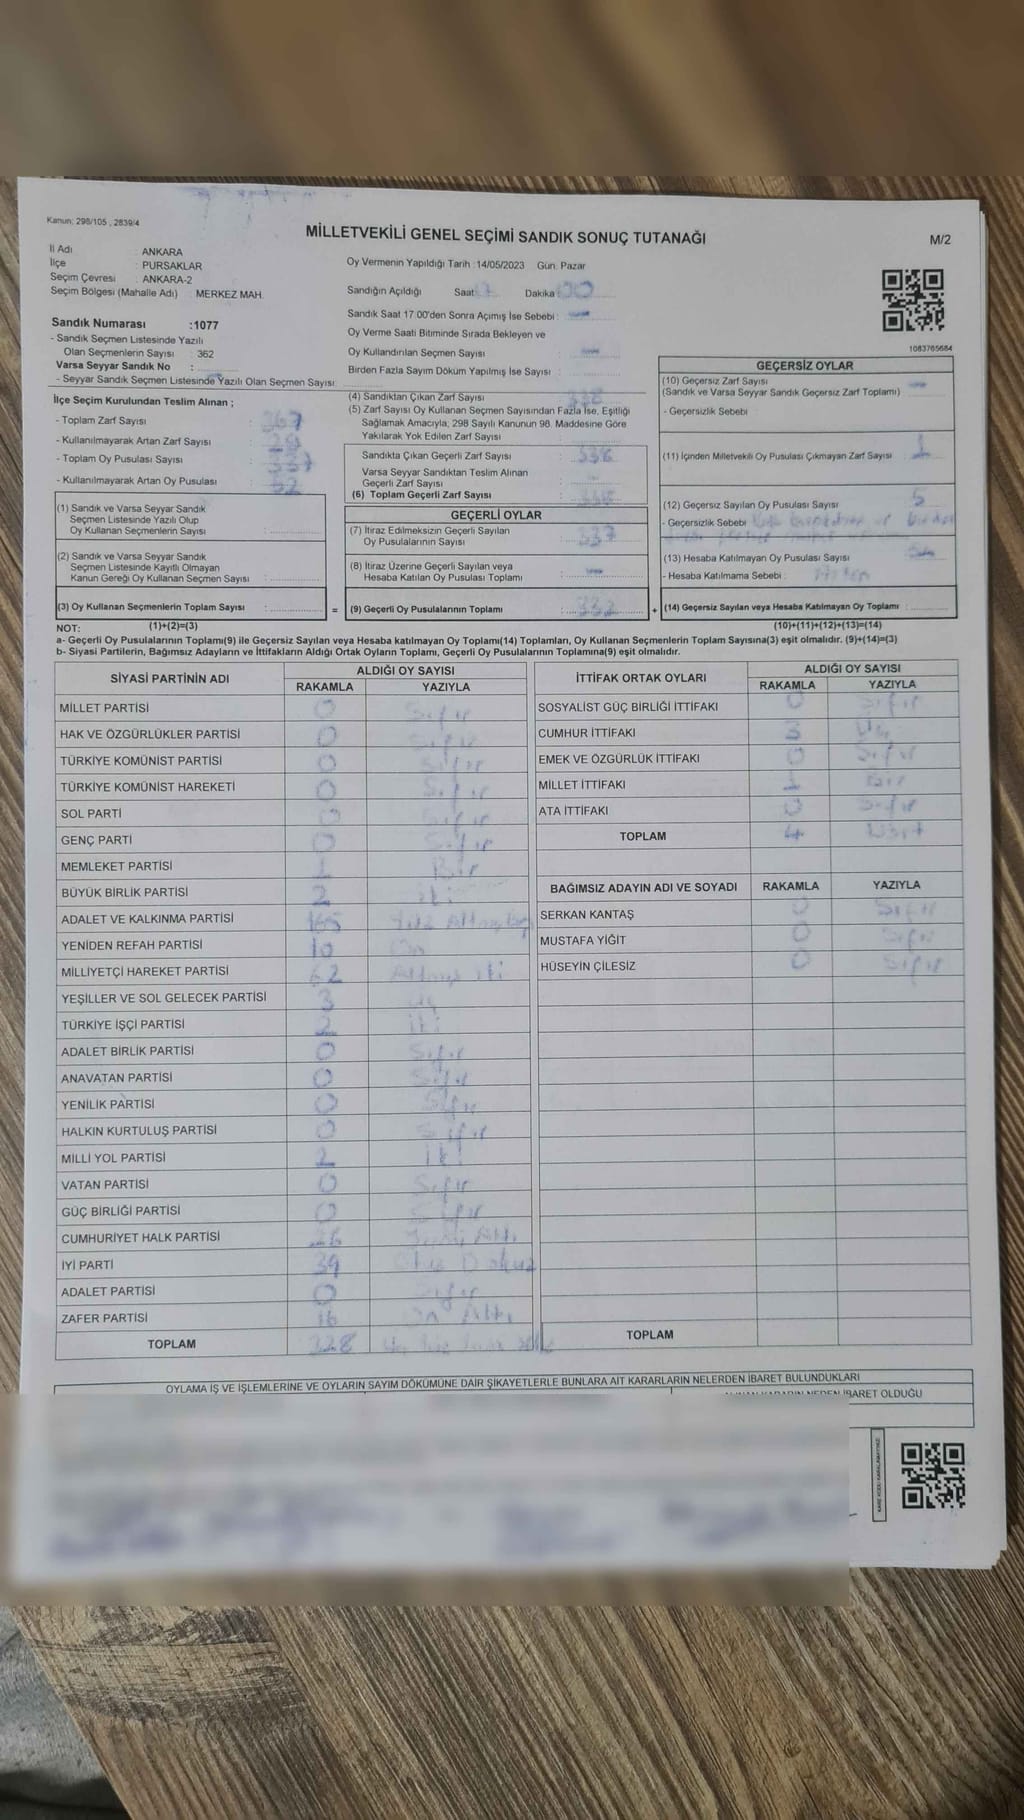 Kanun: 298/105 , 2839/4
MİLLETVEKİLİ GENEL SEÇİMİ SANDIK SONUÇ TUTANAĞI
M/2
İl Adı : ANKARA
İlçe : PURSAKLAR
Seçim Çevresi : ANKARA-2
Seçim Bölgesi (Mahalle Adı) : MERKEZ MAH.
Oy Vermenin Yapıldığı Tarih : 14/05/2023 Gün: Pazar
Sandığın Açıldığı Saat Dakika : 00
Sandık Saat 17:00'den Sonra Açımış İse Sebebi :
Oy Verme Saati Bitiminde Sırada Bekleyen ve
Oy Kullandırılan Seçmen Sayısı :
Birden Fazla Sayım Döküm Yapılmış İse Sayısı :
1083765684
Sandık Numarası :1077
- Sandık Seçmen Listesinde Yazılı
Olan Seçmenlerin Sayısı : 362
Varsa Seyyar Sandık No :
- Seyyar Sandık Seçmen Listesinde Yazılı Olan Seçmen Sayısı:
İlçe Seçim Kurulundan Teslim Alınan ;
- Toplam Zarf Sayısı : 367
- Kullanılmayarak Artan Zarf Sayısı :
- Toplam Oy Pusulası Sayısı :
- Kullanılmayarak Artan Oy Pusulası : 52
(1) Sandık ve Varsa Seyyar Sandık
Seçmen Listesinde Yazılı Olup
Oy Kullanan Seçmenlerin Sayısı :
(2) Sandık ve Varsa Seyyar Sandık
Seçmen Listesinde Kayıtlı Olmayan
Kanun Gereği Oy Kullanan Seçmen Sayısı :
(3) Oy Kullanan Seçmenlerin Toplam Sayısı : =
(4) Sandıktan Çıkan Zarf Sayısı : 338
(5) Zarf Sayısı Oy Kullanan Seçmen Sayısından Fazla İse, Eşitliği
Sağlamak Amacıyla; 298 Sayılı Kanunun 98. Maddesine Göre
Yakılarak Yok Edilen Zarf Sayısı :
Sandıkta Çıkan Geçerli Zarf Sayısı : 338
Varsa Seyyar Sandıktan Teslim Alınan
Geçerli Zarf Sayısı :
(6) Toplam Geçerli Zarf Sayısı : 338
GEÇERLİ OYLAR
(7) İtiraz Edilmeksizin Geçerli Sayılan
Oy Pusulalarının Sayısı :
(8) İtiraz Üzerine Geçerli Sayılan veya
Hesaba Katılan Oy Pusulası Toplamı :
(9) Geçerli Oy Pusulalarının Toplamı : 332 +
GEÇERSİZ OYLAR
(10) Geçersiz Zarf Sayısı
(Sandık ve Varsa Seyyar Sandık Geçersiz Zarf Toplamı) :
- Geçersizlik Sebebi :
(11) İçinden Milletvekili Oy Pusulası Çıkmayan Zarf Sayısı : 1
(12) Geçersiz Sayılan Oy Pusulası Sayısı : 5
- Geçersizlik Sebebi :
(13) Hesaba Katılmayan Oy Pusulası Sayısı :
- Hesaba Katılmama Sebebi :
(14) Geçersiz Sayılan veya Hesaba Katılmayan Oy Toplamı :
NOT: (1)+(2)=(3) (10)+(11)+(12)+(13)=(14)
a- Geçerli Oy Pusulalarının Toplamı(9) ile Geçersiz Sayılan veya Hesaba katılmayan Oy Toplamı(14) Toplamları, Oy Kullanan Seçmenlerin Toplam Sayısına(3) eşit olmalıdır. (9)+(14)=(3)
b- Siyasi Partilerin, Bağımsız Adayların ve İttifakların Aldığı Ortak Oyların Toplamı, Geçerli Oy Pusulalarının Toplamına(9) eşit olmalıdır.
SİYASİ PARTİNİN ADI ALDIĞI OY SAYISI
RAKAMLA YAZIYLA
MİLLET PARTİSİ 0 Sıfır
HAK VE ÖZGÜRLÜKLER PARTİSİ 0 Sıfır
TÜRKİYE KOMÜNİST PARTİSİ 0 Sıfır
TÜRKİYE KOMÜNİST HAREKETİ 0 Sıfır
SOL PARTİ 0 Sıfır
GENÇ PARTİ 0 Sıfır
MEMLEKET PARTİSİ 1 Bir
BÜYÜK BİRLİK PARTİSİ 2 iki
ADALET VE KALKINMA PARTİSİ 165 Yüz Altmış Beş
YENİDEN REFAH PARTİSİ 10 On
MİLLİYETÇİ HAREKET PARTİSİ 62 Altmış iki
YEŞİLLER VE SOL GELECEK PARTİSİ 3 Üç
TÜRKİYE İŞÇİ PARTİSİ 2 iki
ADALET BİRLİK PARTİSİ 0 Sıfır
ANAVATAN PARTİSİ 0 Sıfır
YENİLİK PARTİSİ 0 Sıfır
HALKIN KURTULUŞ PARTİSİ 0 Sıfır
MİLLİ YOL PARTİSİ 2 iki
VATAN PARTİSİ 0 Sıfır
GÜÇ BİRLİĞİ PARTİSİ 0 Sıfır
CUMHURİYET HALK PARTİSİ 26 Yirmi Altı
İYİ PARTİ 39 Otuz Dokuz
ADALET PARTİSİ 0 Sıfır
ZAFER PARTİSİ 16 On Altı
TOPLAM 328 Üç Yüz Yirmi Sekiz
İTTİFAK ORTAK OYLARI ALDIĞI OY SAYISI
RAKAMLA YAZIYLA
SOSYALİST GÜÇ BİRLİĞİ İTTİFAKI 0 Sıfır
CUMHUR İTTİFAKI 3 Üç
EMEK VE ÖZGÜRLÜK İTTİFAKI 0 Sıfır
MİLLET İTTİFAKI 1 Bir
ATA İTTİFAKI 0 Sıfır
TOPLAM 4 Dört
BAĞIMSIZ ADAYIN ADI VE SOYADI RAKAMLA YAZIYLA
SERKAN KANTAŞ 0 Sıfır
MUSTAFA YİĞİT 0 Sıfır
HÜSEYİN ÇİLESİZ 0 Sıfır
TOPLAM
OYLAMA İŞ VE İŞLEMLERİNE VE OYLARIN SAYIM DÖKÜMÜNE DAİR ŞİKAYETLERLE BUNLARA AİT KARARLARIN NELERDEN İBARET BULUNDUKLARI
İBARET OLDUĞU